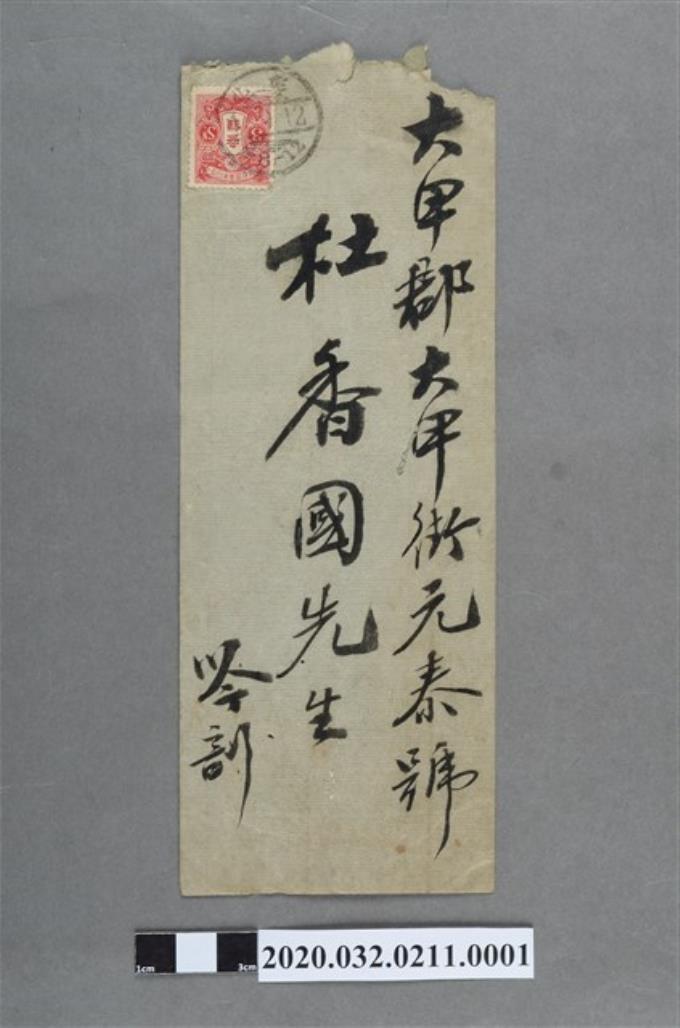 大甲郡大甲街元泰號
杜香國先生
12
8-12
1cm
3cm
2020.032.0211.0001